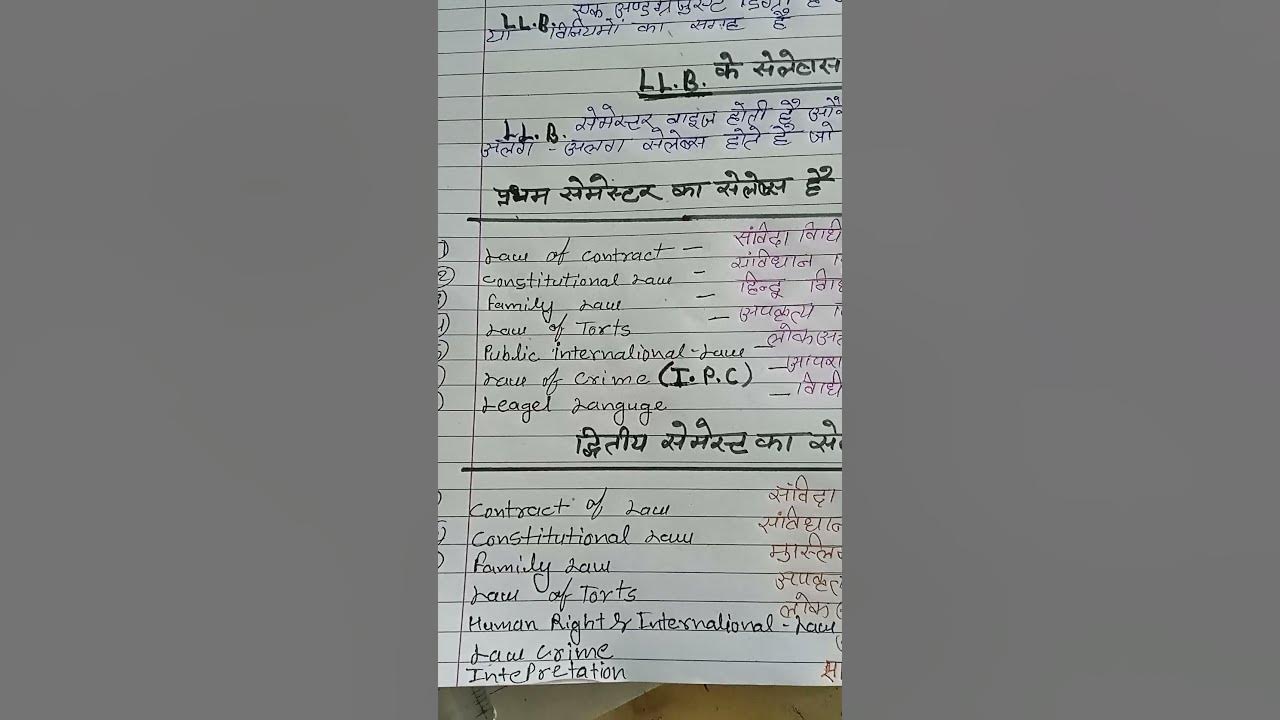 एक अण्डरग्रेजुएट डिग्री है
LL.B.
या विनियमों का संग्रह है
LL.B. के सेलेबास
LL.B. सेमेस्टर वाइज होती है और
अलग - अलग सेलेब्स होते है जो
प्रथम सेमेस्टर का सेलेब्स है
① Law of contract — संविदा विधि
② Constitutional Law — संविधान
③ Family Law — हिन्दू विधि
④ Law of Torts — अपकृत्य
⑤ Public international-Law — लोक अ
Law of Crime (I.P.C) — आपरा
Leagel Languge — विधि
द्वितीय सेमेस्ट का से
Contract of Law संविदा
Constitutional Law संविधान
Family Law मुस्लि
Law of Torts अपकृत्
Human Right & International-Law लोक
Law Crime
Intepretation